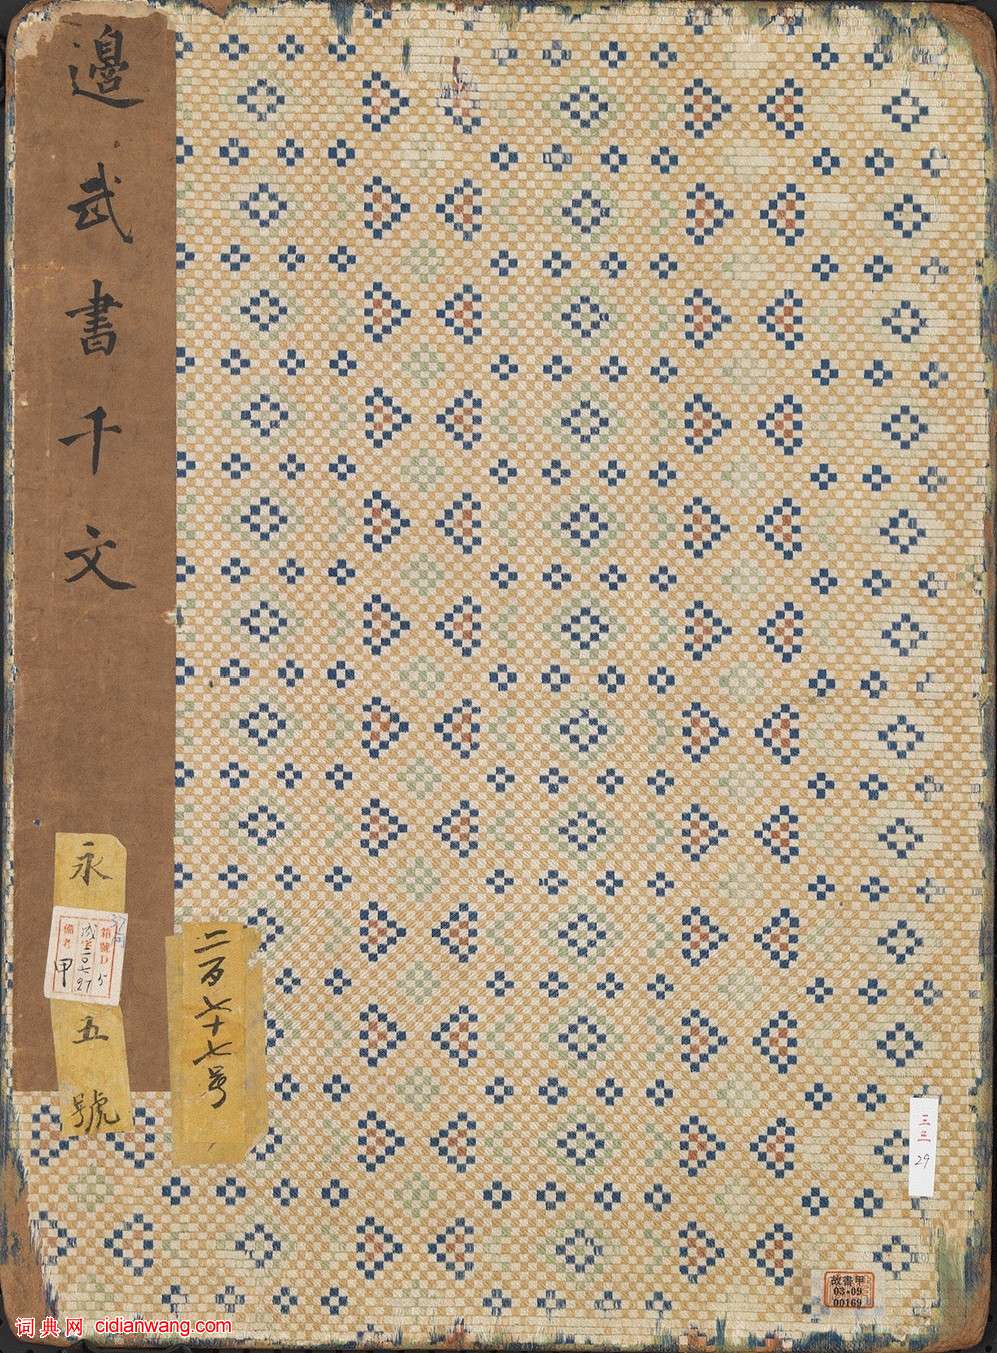 邊武書千文
永
五
號
備考 甲
箱號
二百七十七号
三三
29
故書甲
03•09
00169
词典网 cidianwang.com